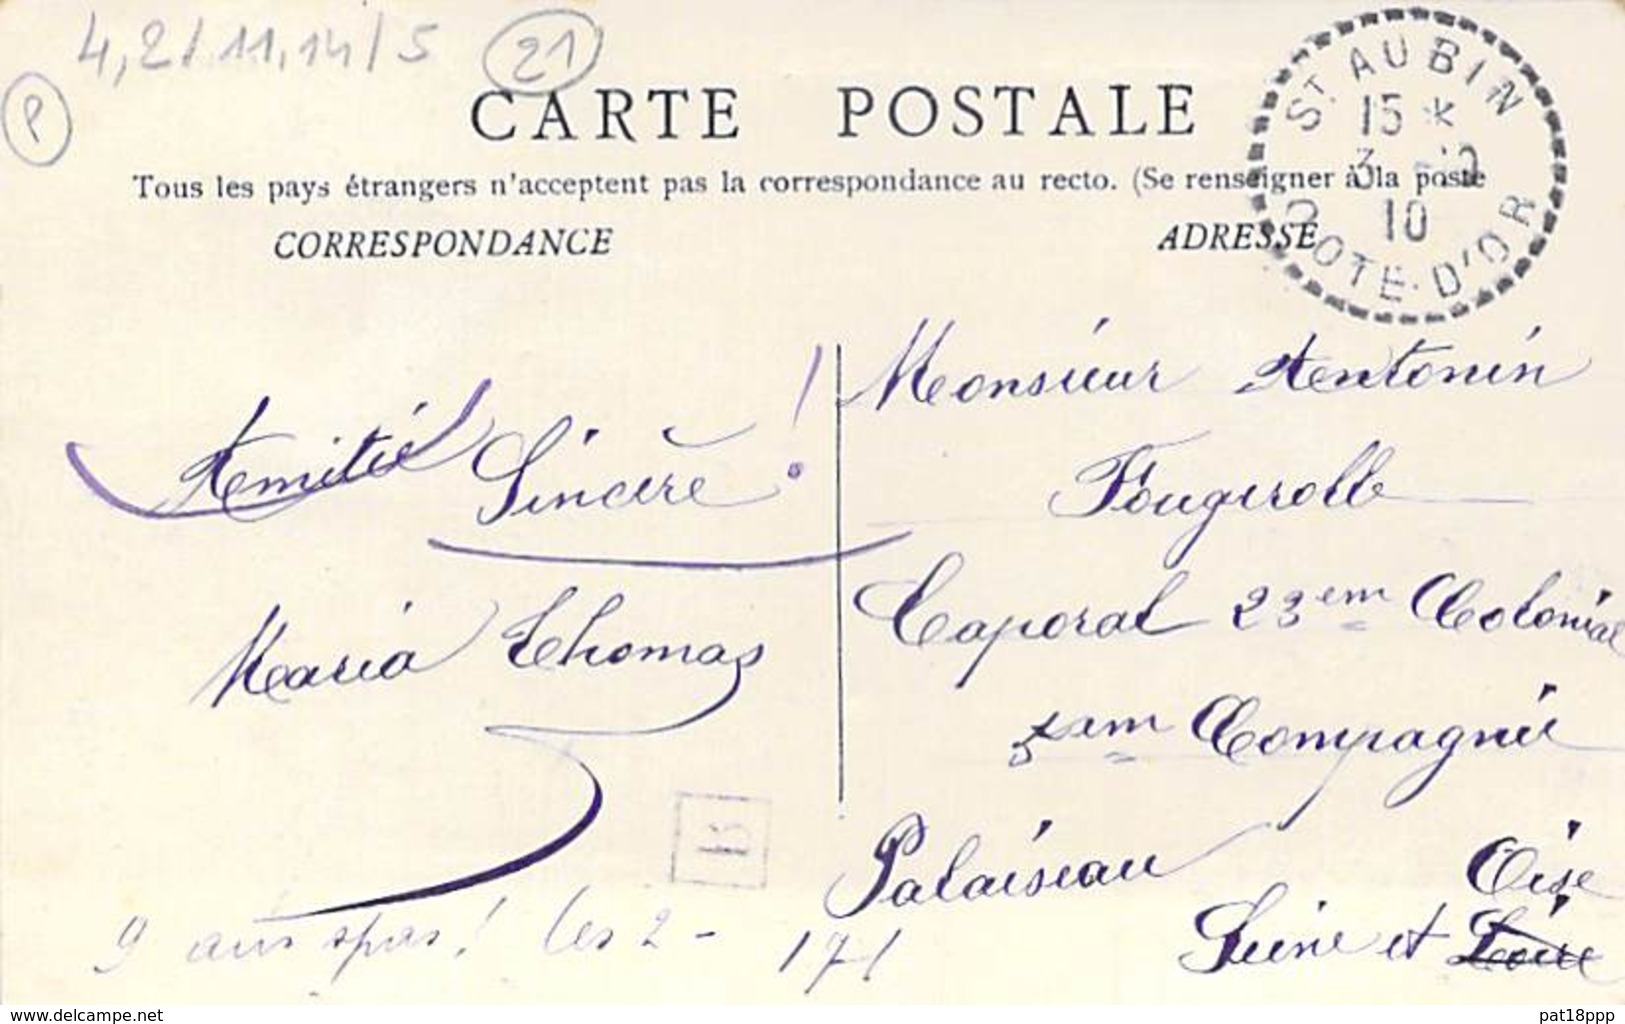 4,2/11,14/5
21
P
CARTE POSTALE
Tous les pays étrangers n'acceptent pas la correspondance au recto. (Se renseigner à la poste
CORRESPONDANCE
ADRESSE
ST AUBIN
15 *
3 -5
10
COTE-D'OR
Amitié Sincère !
Maria Thomas
B
9 ans
! les 2 -
171
Monsieur Antonin
Fougerolle
Caporal 23em Colonial
5em Compagnie
Palaiseau Oise
Seine et Loire
www.delcampe.net
pat18ppp